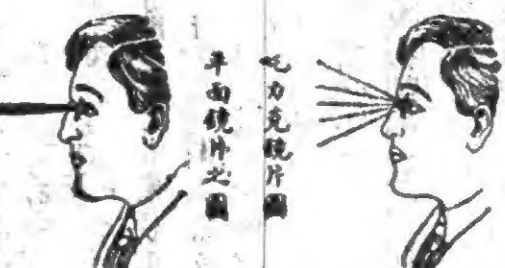 力克鏡片圖
平面鏡片之圖